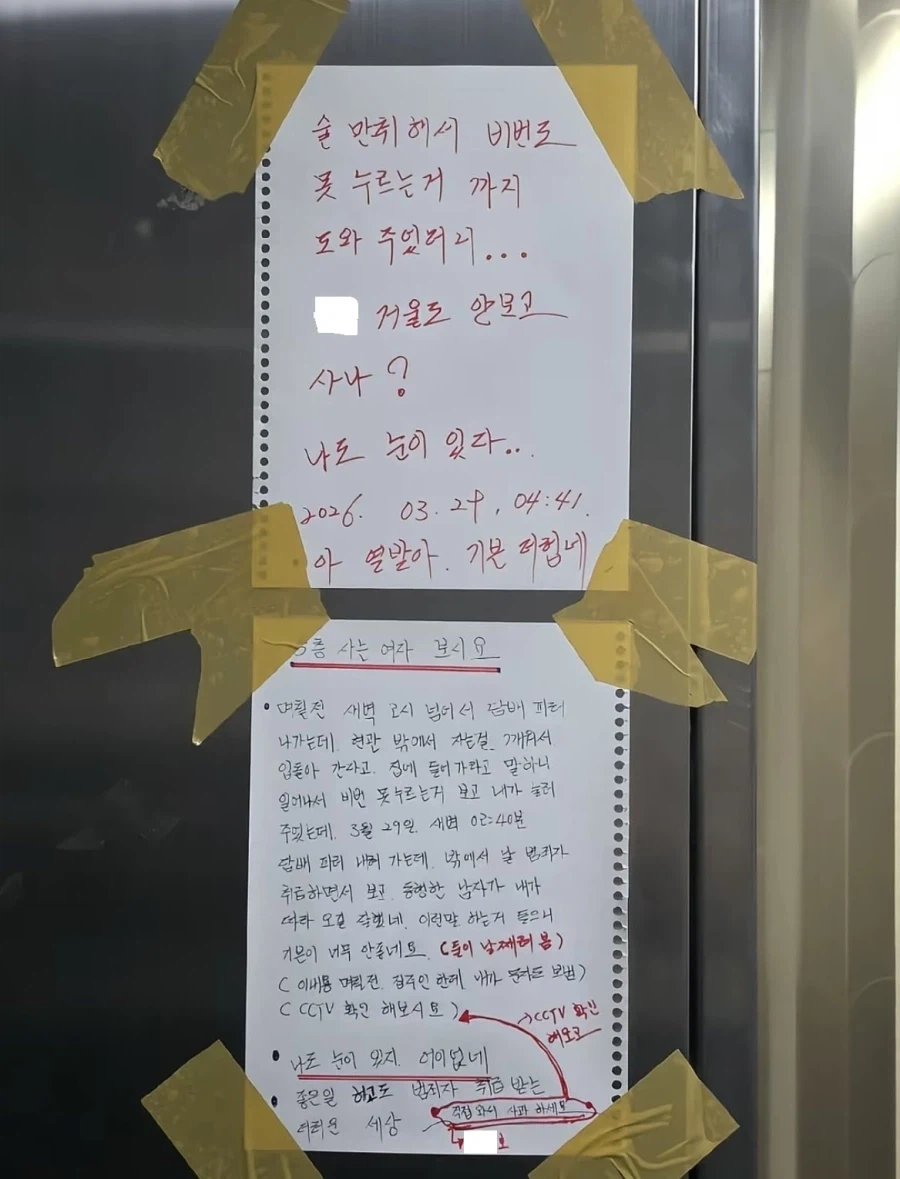 술 만취해서 비번도
못 누르는거 까지
도와 주었더니...
거울도 안보고
사나?
나도 눈이 있다..
2026. 03. 29, 04:41.
아 열발아. 기분 더럽네
5층 사는 여자 보시요
며칠전 새벽 2시 넘어서 담배 피러
나가는데. 현관 밖에서 자는걸. 깨워서
입돌아 간다고. 집에 들어가라고 말하니
일어나서 비번 못누르는거 보고 내가 눌러
주었는데. 3월 29일. 새벽 02:40분
담배 피러 내려 가는데. 밖에서 날 범죄자
취급하면서 보고. 동행한 남자가 내가
따라 오길 잘했네. 이런말 하는거 들으니
기분이 너무 안좋네요. (둘이 날 째려 봄)
( 이내용 며칠전. 집주인 한테 내가 문자도 보냄)
( CCTV 확인 해보시요 )
→CCTV 확인
해보고
나도 눈이 있지. 어이없네
좋은일 하고도 범죄자 취급 받는
더러운 세상
직접 와서 사과 하세요